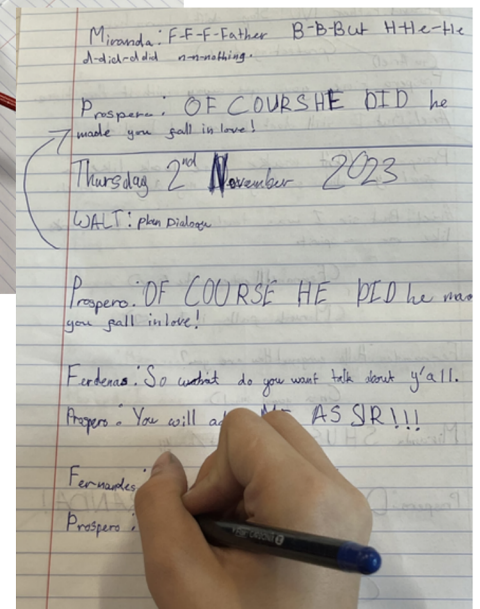 Miranda: F-F-F-Father B-B-But H-He-He
d-did-d did n-n-nothing.
Prospero: OF COURSHE DID he
made you fall in love!
Thursday 2nd November 2023
WALT: plan Dialogue
Prospero: OF COURSE HE DID he
you fall in love!
Ferdenas: So what do you want talk about y'all.
Prospero: You will AS SIR!!!
Fernandes:
Prospero: